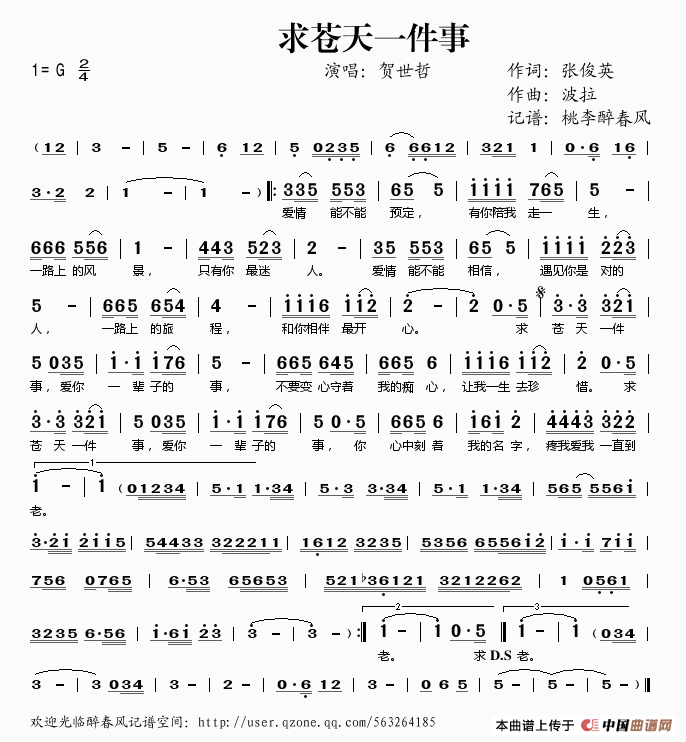 求苍天一件事
1= G 2/4 演唱：贺世哲 作词：张俊英
作曲：波拉
记谱：桃李醉春风
(12 | 3 - | 5 - | 6 12 | 5 0235 | 6 6612 | 321 1 | 0·6 16 |
3·2 2 | 1 - | 1 - ) |: 335 553 | 65 5 | 1111 765 | 5 - |
爱情 能不能 预定， 有你陪我 走一 生，
666 556 | 1 - | 443 523 | 2 - | 35 553 | 65 5 | 1111 223 |
一路上 的风 景， 只有你 最迷 人。 爱情 能不能 相信， 遇见你是 对的
5 - | 665 654 | 4 - | 1116 112 | 2 - | 2 0·5 | 3·3 321 |
人， 一路上 的旅 程， 和你相伴 最开 心。 求 苍天 一件
5 035 | 1·1 176 | 5 - | 665 645 | 665 6 | 1116 112 | 2 0·5 |
事，爱你 一 辈子的 事， 不要变 心守着 我的痴 心， 让我一生 去珍 惜。 求
3·3 321 | 5 035 | 1·1 176 | 5 0·5 | 665 6 | 161 2 | 4443 322 |
苍 天 一件 事，爱你 一 辈子的 事， 你 心中刻 着 我的名 字， 疼我爱我 一直到
1
1 - | 1 (01234 | 5·1 1·34 | 5·3 3·34 | 5·1 1·34 | 565 5561 |
老。
3·21 2115 | 54433 322211 | 1612 3235 | 5356 655612 | 1·1 711 |
756 0765 | 6·53 65653 | 521♭36121 3212262 | 1 0561 |
3235 6·56 | 1·61 23 | 3 - | 3 - ) :| 2 1 - | 1 0·5 | 3 1 - | 1 (034 |
老。 求 D.S 老。
3 - | 3 034 | 3 - | 2 - | 0·6 12 | 3 - | 3 - | 3 - ) |
欢迎光临醉春风记谱空间：http://user.qzone.qq.com/563264185
本曲谱上传于 中国曲谱网